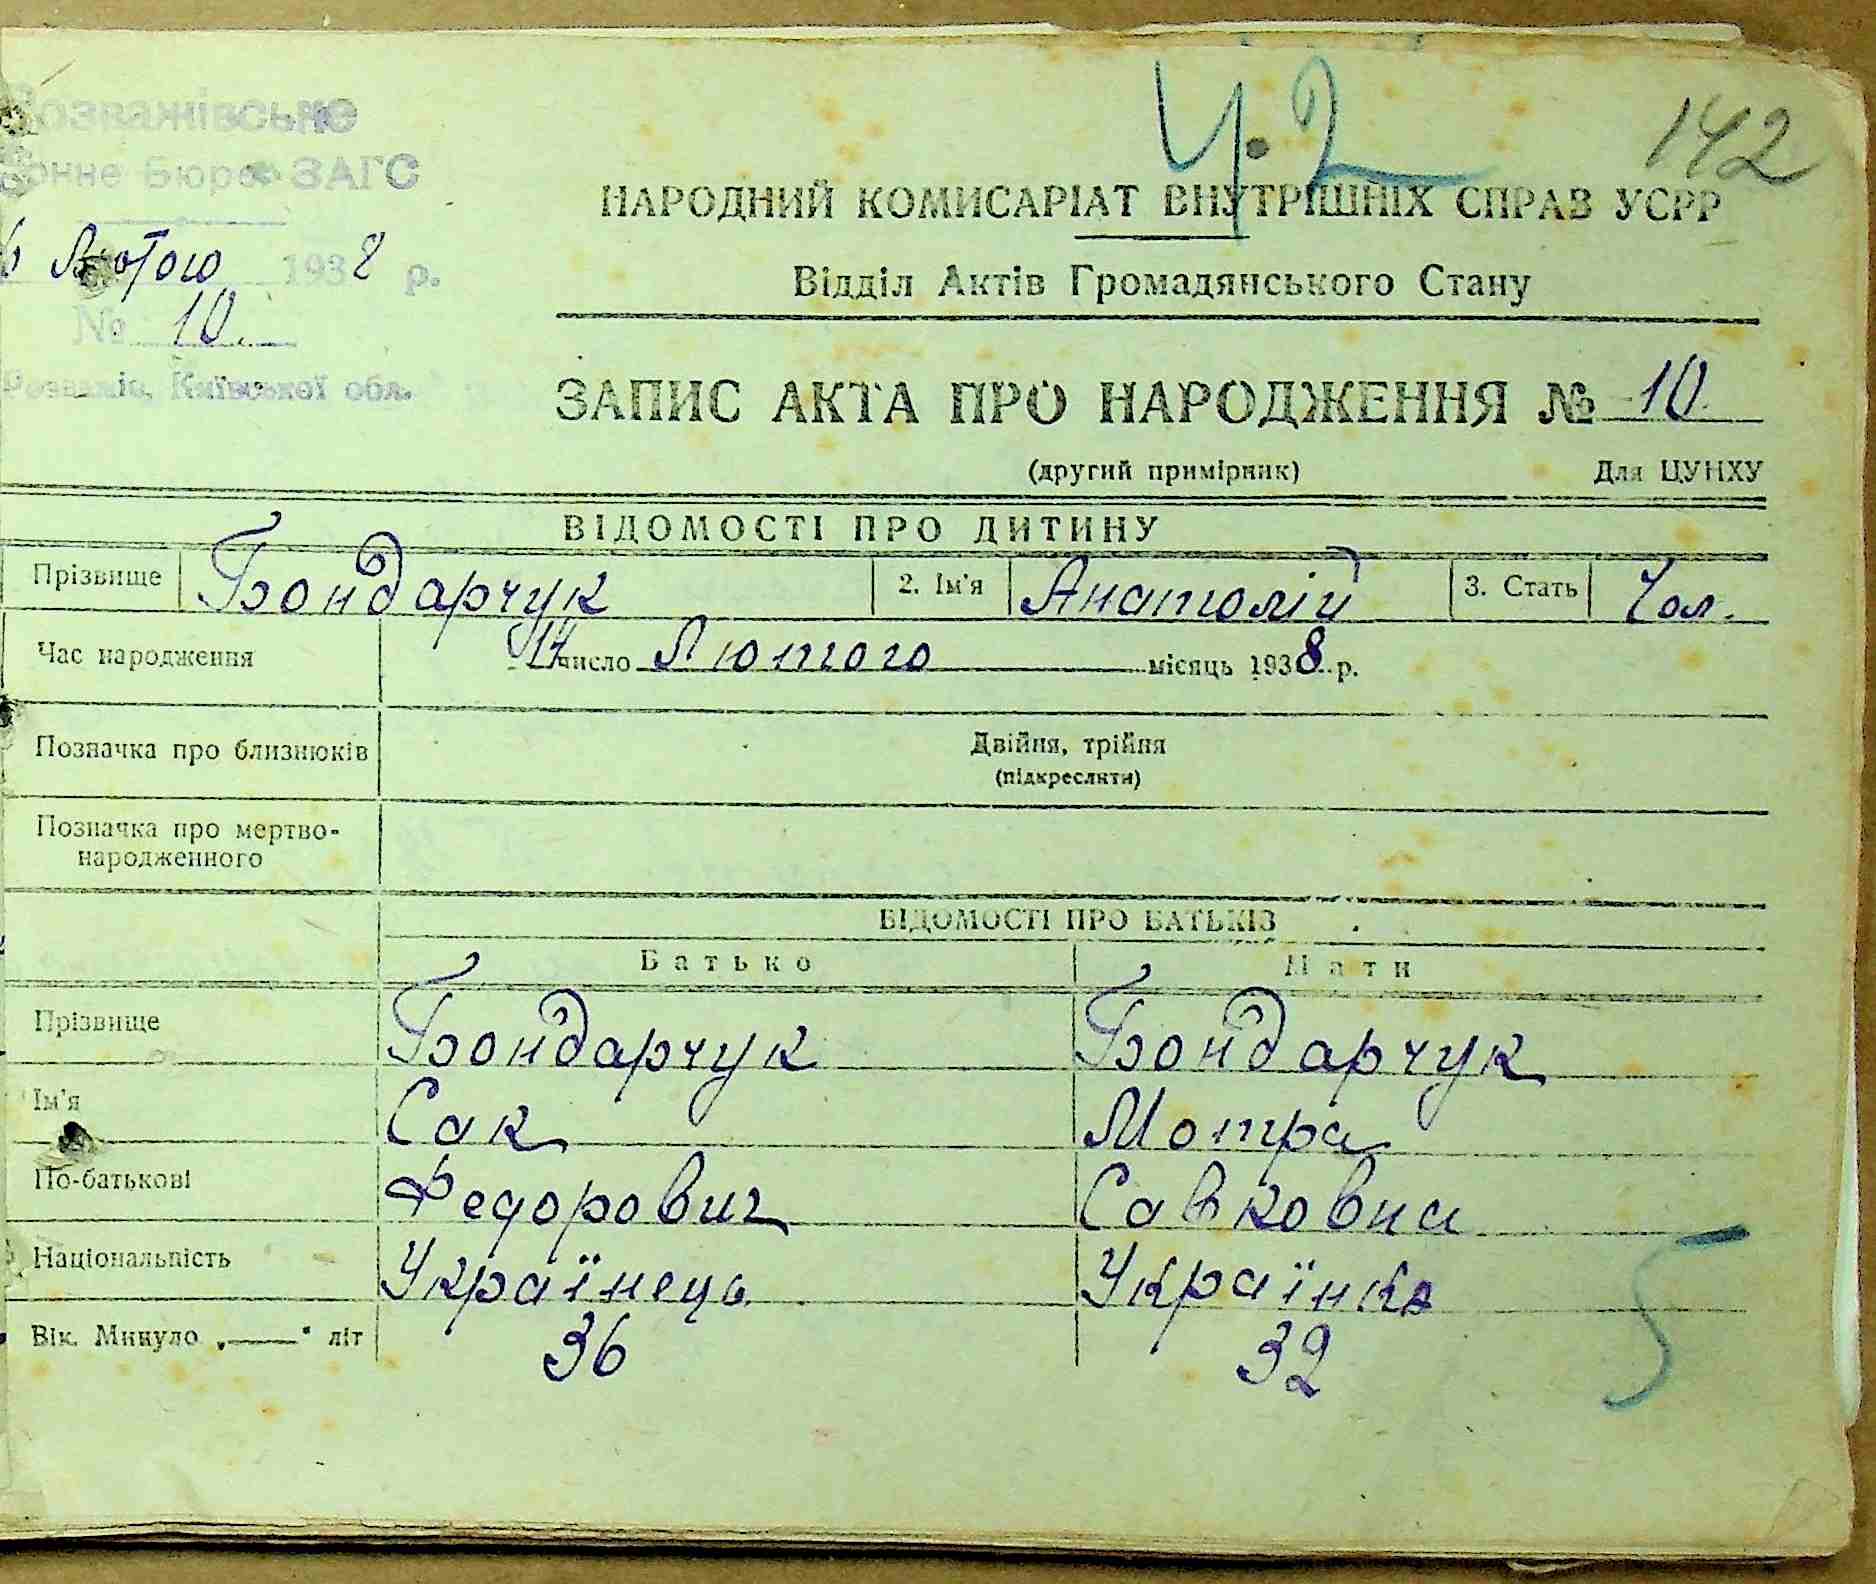 Розважівське
Бюро ЗАГС
Лютого 1938 р.
№ 10.
Розважів, Київської обл.
Ч.2
142
НАРОДНИЙ КОМИСАРІАТ ВНУТРІШНІХ СПРАВ УСРР
Відділ Актів Громадянського Стану
ЗАПИС АКТА ПРО НАРОДЖЕННЯ № 10.
(другий примірник) Для ЦУНХУ
ВІДОМОСТІ ПРО ДИТИНУ
Прізвище Бондарчук 2. Ім'я Анатолій 3. Стать Чол.
Час народження 14 число Лютого місяць 1938 р.
Позначка про близнюків Двійня, трійня
(підкреслити)
Позначка про мертво-
народженного
ВІДОМОСТІ ПРО БАТЬКІВ
Батько Мати
Прізвище Бондарчук Бондарчук
Ім'я Сак Мотра
По-батькові Федорович Савковна
Національність Українець Українка
Вік. Минуло „—" літ 36 32
5